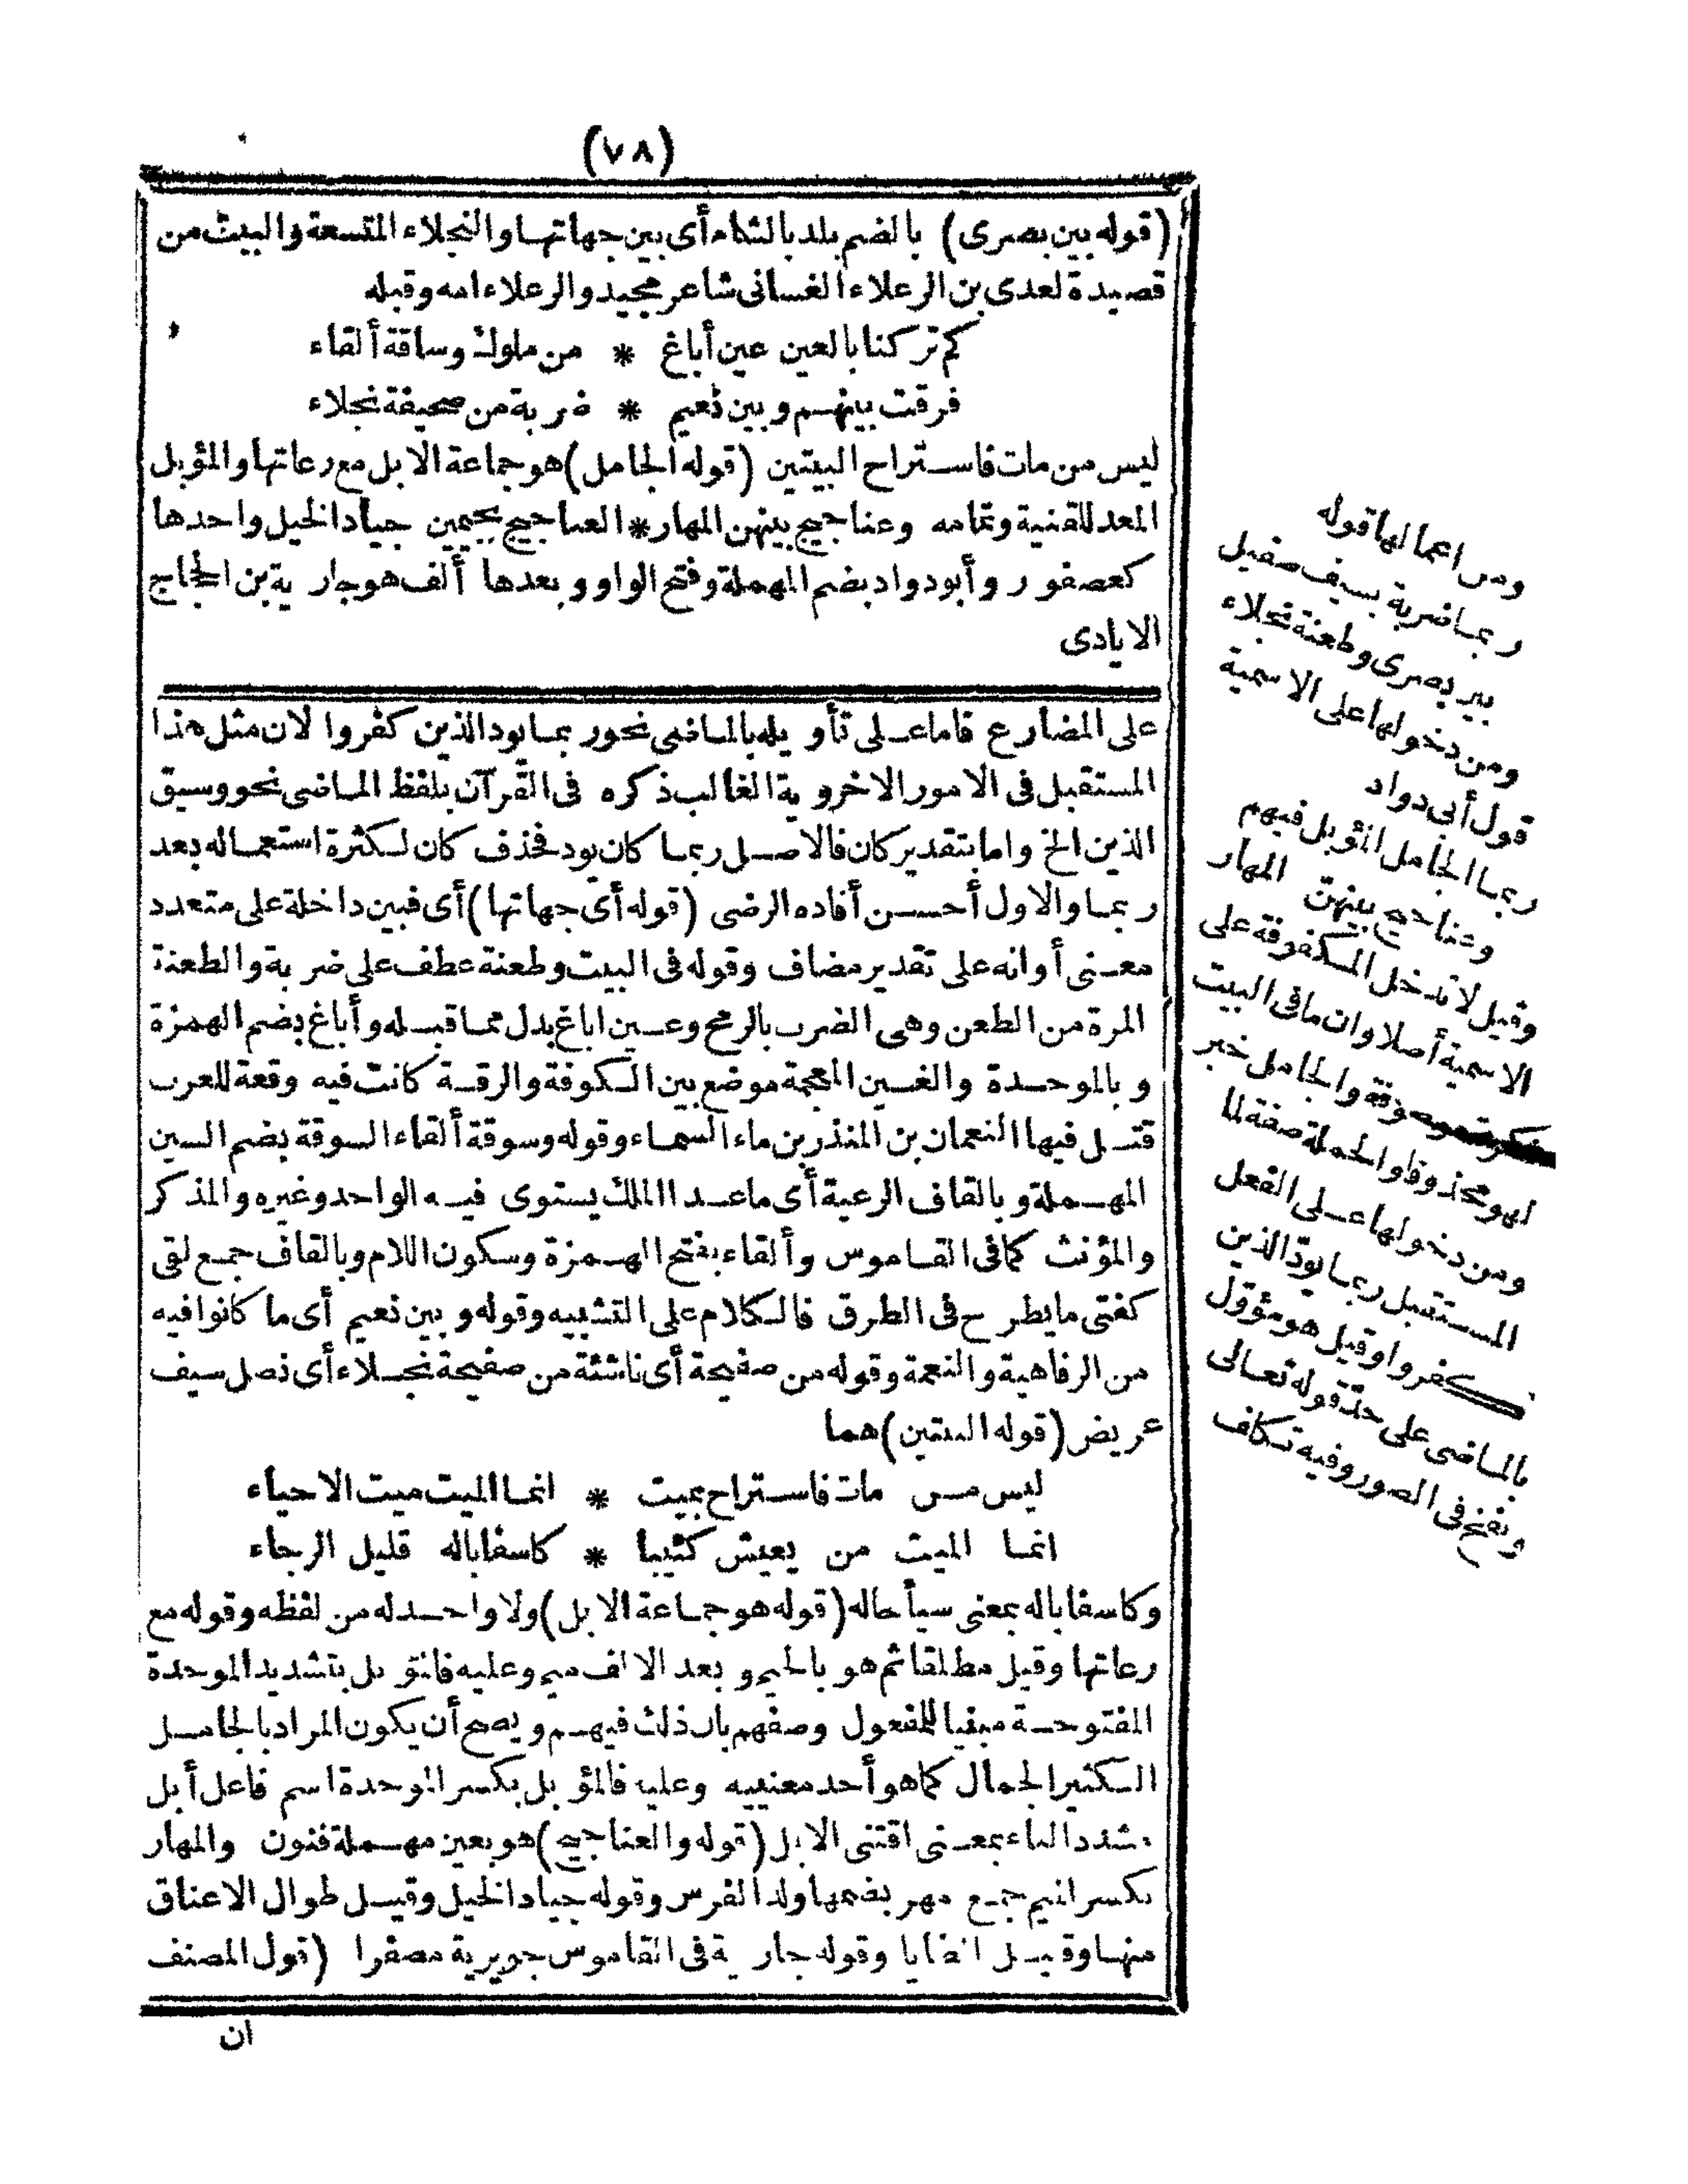 (٧٨)
(قوله بين بصرى) بالضم بلد بالشام أى بين جهاتها والنجلاء المتسعة والبيت من
قصيدة لعدى بن الرعلاء الغسانى شاعر مجيد والرعلاء امه وقبله
كم تركنا بالعين عين أباغ * من ملوك وساقة ألقاء
فرقت بينهم وبين نعيم * ضربة من صحيفة نجلاء
ليس من مات فاستراح البيتين (قوله الجامل) هو جماعة الابل مع رعاتها والمؤبل
المعد للقنية وتمامه وعناجيج بينهن المهار * العناجيج بجيمين جياد الخيل واحدها
كعصفور وأبو دواد بضم المهملة وفتح الواو وبعدها ألف هو جارية بن الحجاج
الايادى
على المضارع فاما على تأويله بالماضى نحو ربما يود الذين كفروا لان مثل هذا
المستقبل فى الامور الاخروية الغالب ذكره فى القرآن بلفظ الماضى نحو وسيق
الذين الخ واما بتقدير كان فالاصل ربما كان يود فحذف كان لكثرة استعماله بعد
ربما والاول أحسن أفاده الرضى (قوله أى جهاتها) أى فبين داخلة على متعدد
معنى أو انه على تقدير مضاف وقوله فى البيت وطعنة عطف على ضربة والطعنة
المرة من الطعن وهى الضرب بالرمح وعين اباغ بدل مما قبله وأباغ بضم الهمزة
وبالموحدة والغين المعجمة موضع بين الكوفة والرقة كانت فيه وقعة للعرب
قتل فيها النعمان بن المنذر بن ماء السماء وقوله وسوقة ألقاء السوقة بضم السين
المهملة وبالقاف الرعية أى ما عدا الملك يستوى فيه الواحد وغيره والمذكر
والمؤنث كما فى القاموس وألقاء بفتح الهمزة وسكون اللام وبالقاف جمع لقى
كفتى ما يطرح فى الطرق فالكلام على التشبيه وقوله وبين نعيم أى ما كانوا فيه
من الرفاهية والنعمة وقوله من صفيحة أى ناشئة من صفيحة نجلاء أى نصل سيف
عريض (قوله البيتين) هما
ليس من مات فاستراح بميت * انما الميت ميت الاحياء
انما الميت من يعيش كئيبا * كاسفا باله قليل الرجاء
وكاسفا باله بمعنى سيأ حاله (قوله هو جماعة الابل) ولا واحد له من لفظه وقوله مع
رعاتها وقيل مطلقا ثم هو بالجيم وبعد الالف ميم وعليه فالمؤبل بتشديد الموحدة
المفتوحة مبنيا للمفعول وصفهم بان ذلك فيهم ويصح أن يكون المراد بالجامل
الكثير الجمال كما هو أحد معنييه وعليه فالمؤبل بكسر الموحدة اسم فاعل أبل
مشدد الباء بمعنى اقتنى الابل (قوله والعناجيج) هو بعين مهملة فنون والمهار
بكسر الميم جمع مهر بضمها ولد الفرس وقوله جياد الخيل وقيل طوال الاعناق
منها وقيل وقوله جارية فى القاموس جويرية مصغرا (قول المصنف
ان
ومن اعمالها قوله
ربما ضربة بسيف صقيل
بين بصرى وطعنة نجلاء
ومن دخولها على الاسمية
قول أبى دواد
ربما الجامل المؤبل فيهم
وعناجيج بينهنّ المهار
وقيل لا تدخل المكفوفة على
الاسمية أصلا وان ما فى البيت
نكرة موصوفة والجامل خبر
لهو محذوفا والجملة صفة لما
ومن دخولها على الفعل
المستقبل ربما يودّ الذين
كفروا وقيل هو مؤوّل
بالماضى على حدّ قوله تعالى
ونفخ فى الصور وفيه تكلف